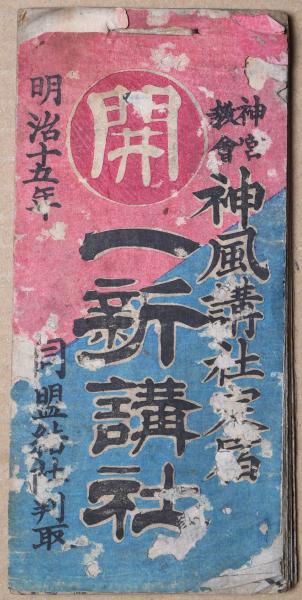 神宮
教會
神風講社定宿
開
一新講社
明治十五年
同盟結社判取